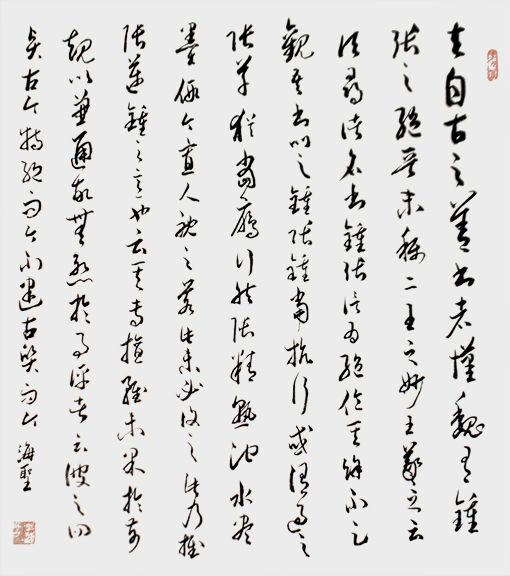 夫自古之善書者漢魏有鍾
張之絕晉末稱二王之妙王羲之云
頃尋諸名書鍾張信為絕倫其餘不足
觀吾書比之鍾張鍾當抗行或謂過之
張草猶當雁行然張精熟池水盡
墨假令寡人耽之若此未必謝之此乃推
張邁鍾之意也考其專擅雖未果於前
規以兼通故無慙於事評者云彼之四
賢古今特絕而今不逮古質而今
海聖